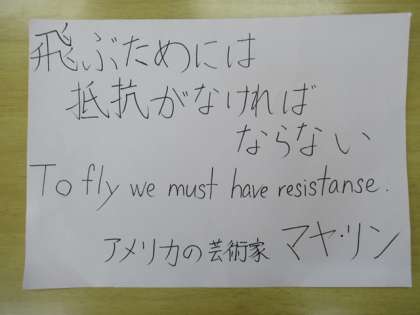 飛ぶためには
抵抗がなければ
ならない
To fly we must have resistanse.
アメリカの芸術家 マヤ・リン